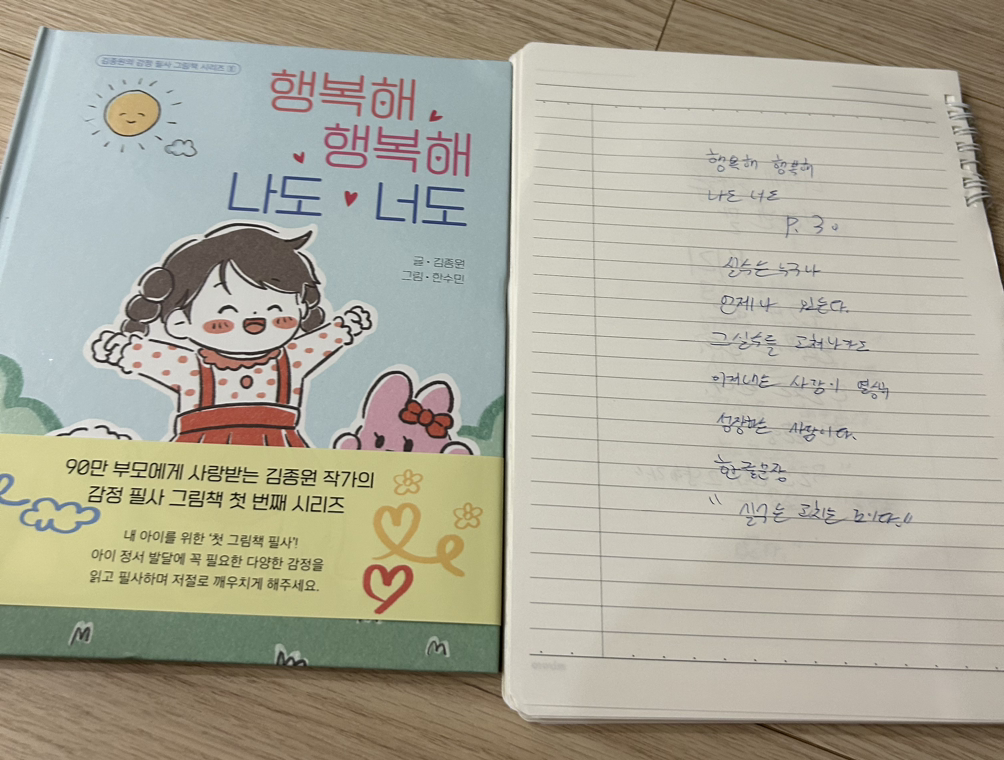 김종원의 감정 필사 그림책 시리즈 1
행복해
행복해
나도 너도
글 · 김종원
그림 · 한수민
90만 부모에게 사랑받는 김종원 작가의
감정 필사 그림책 첫 번째 시리즈
내 아이를 위한 '첫 그림책 필사'!
아이 정서 발달에 꼭 필요한 다양한 감정을
읽고 필사하며 저절로 깨우치게 해주세요.
행복해 행복해
나도 너도
P. 30
실수는 누구나
언제나 있는다.
그 실수를 고쳐나가도
사람이
성장하는 사람이다.
한글문장
" 실수는 고치는 이다."